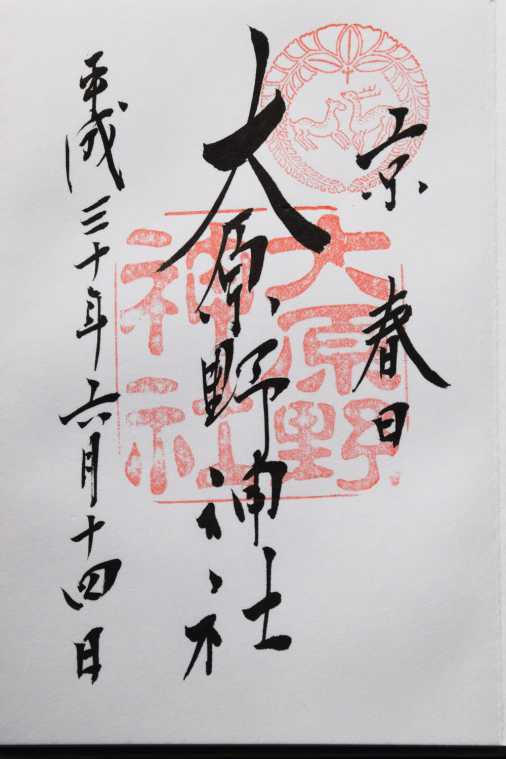 京春日
大原野神社
平成三十年六月十四日
大原野
神社